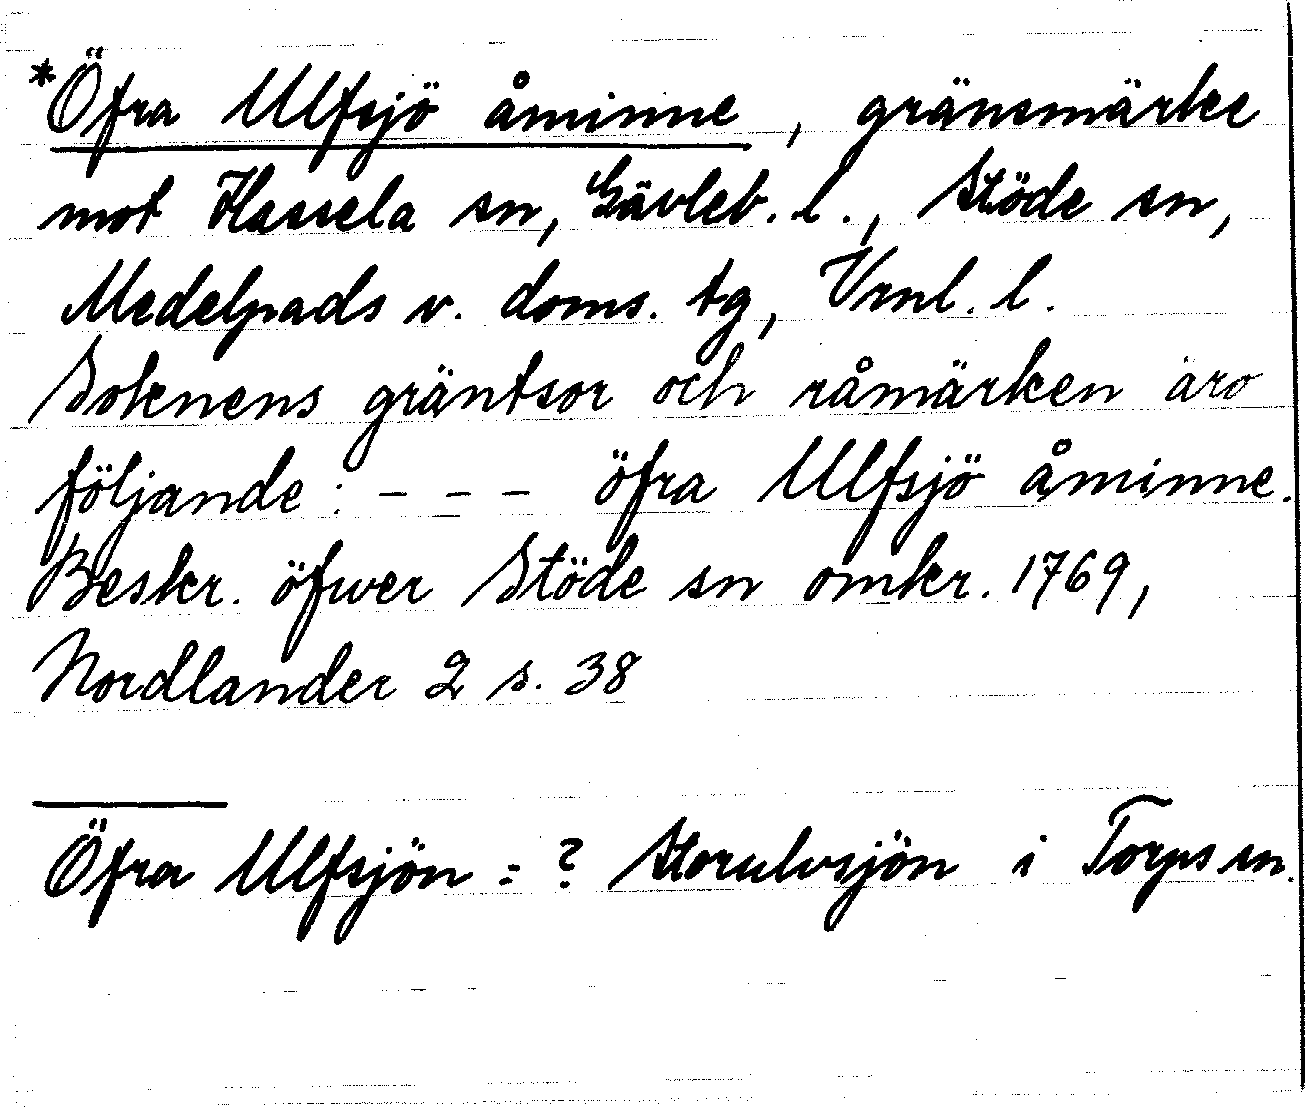 *Öfra Ulfsjö åminne, gränsmärke
mot Hassela sn, Gävleb. l., Stöde sn,
Medelpads v. doms. tg, Vrnl. l.
Soknens gräntsor och råmärken äro
följande: - - - öfra Ulfsjö åminne.
Beskr. öfwer Stöde sn omkr. 1769,
Nordlander 2 s. 38
Öfra Ulfsjön = ? Storulvsjön i Torps sn.